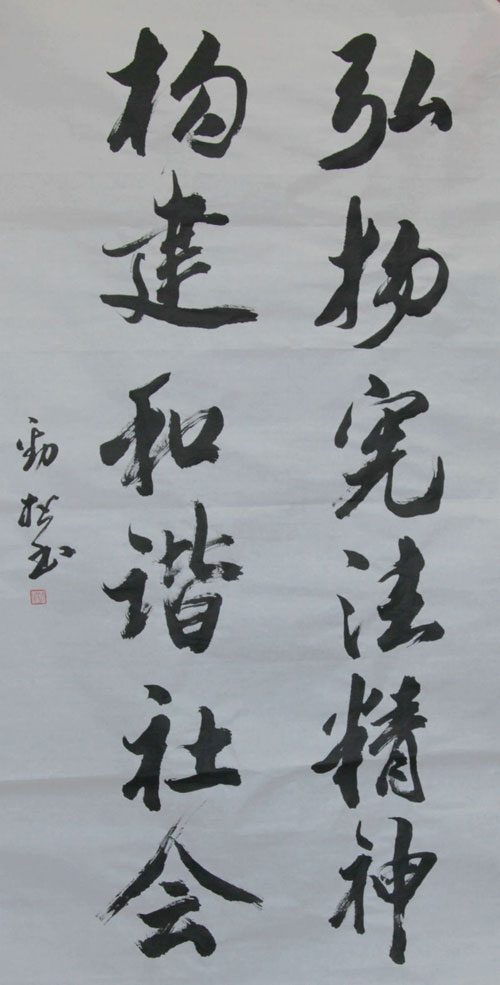 弘扬宪法精神
构建和谐社会
劲松书